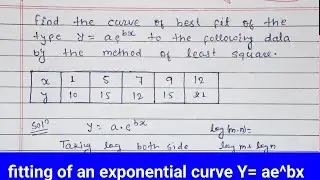 find the curve of best fit of the
type Y = a e^bx to the following data
by the method of least square.
x 1 5 7 9 12
y 10 15 12 15 21
Solⁿ y = a·e^bx log(m·n)=
Taking log both side log m + log n
fitting of an exponential curve Y= ae^bx